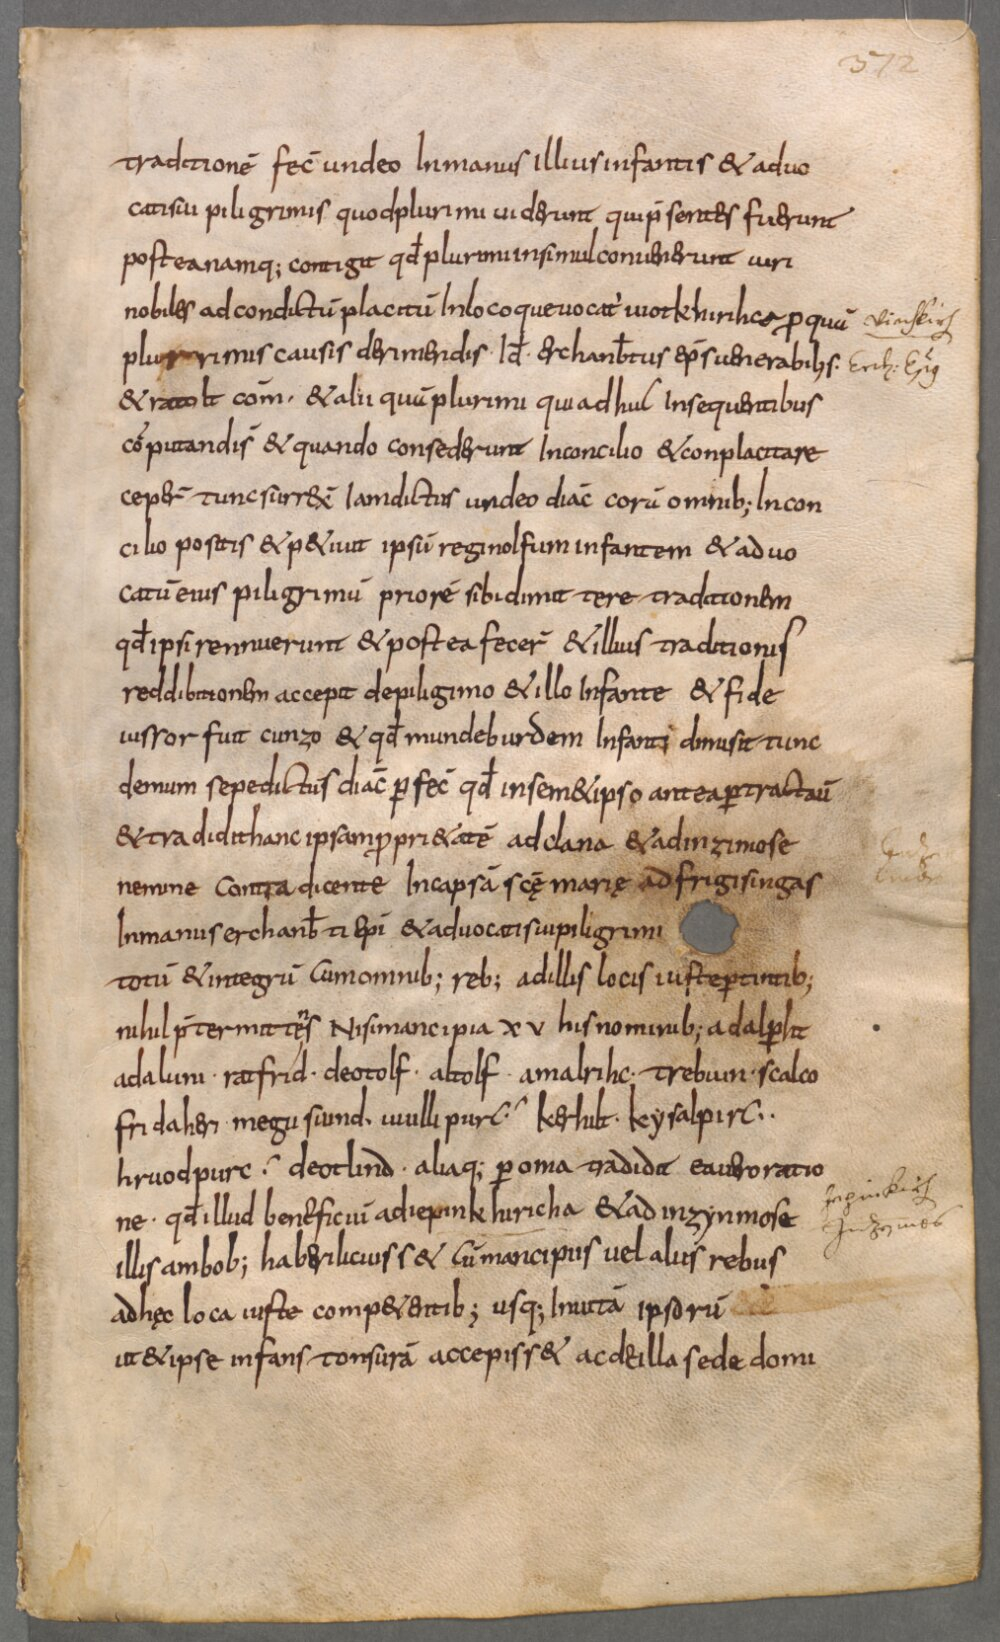 372
traditionē fec̄ undeo Inmanus illius infantis & aduo
catisui piligrimis quodplurimi uiderunt quip̄sentes fuerunt
posteanamq; contigit qd̄ plurimi insimul conuenerunt uiri
nobiles adcondictū placitū Inloco queuocat̄ uiotkhirihc ꝓquū
plurrimis causis derimendis. Id̄. erchanb̄tus ep̄s uenerabilis.
&ratolt com̄. &alii quū plurimi quiadhuc Insequentibus
cōputandis &quando consederunt Inconcilio &conplacitare
ceper̄ tuncsurrex̄ Iamdictus undeo diac̄ corū omnib; Incon
cilio positis &p&iuit ipsū reginolfum infantem &aduo
catū eius piligrimū priorē sibidimittere traditionem
qd̄ ipsi rennuerunt &postea fecer̄ &illius traditionis
reddibitionem accepit depiligimo &illo Infante &fide
iussor fuit cunzo &qd̄ mundeburdem Infanti dimisit tunc
demum sepedictus diac̄ ꝑfec̄ qd̄ insem&ipso anteaꝑtractaū
&tradidithanc ipsamꝓpri&atē adclana &adinzimose
nemine Contra dicente Incapsā scę̄ marię adfrigisingas
Inmanus erchanb̄ti ep̄i &aduocatisui piligrimi
totū &integrū Cumomnib; reb; adillis locis iusteꝑtinentib;
nihil p̄termittens Nisimancipia xv hisnominib; adalperht
adaluni. ratfrid. deotolf. altolf. amalrihc. trebuin. scalco
fridaheri. megisuind. uuillipurc. kerhilt. keysalpirc..
hruodpurc. deotlind. aliaq; ꝑoma tradidit eauero ratio
ne. qd̄ illud beneficiū adiepinkhiricha &adinzynmose
illis ambob; haberilicuiss& Cūmancipiis uel aliis rebus
adhęc loca iuste comp&entib; usq; Inuitā ipsorū
ut&ipse infans tonsurā accepiss& acdeilla sede domi